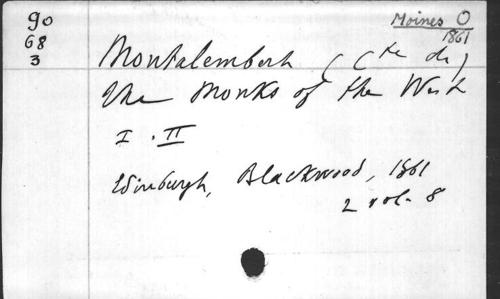 90
68
3
Moines O
1861
Montalembert (Cte de)
The Monks of the West
I. II
Edinburgh, Blackwood, 1861
2 vol. 8